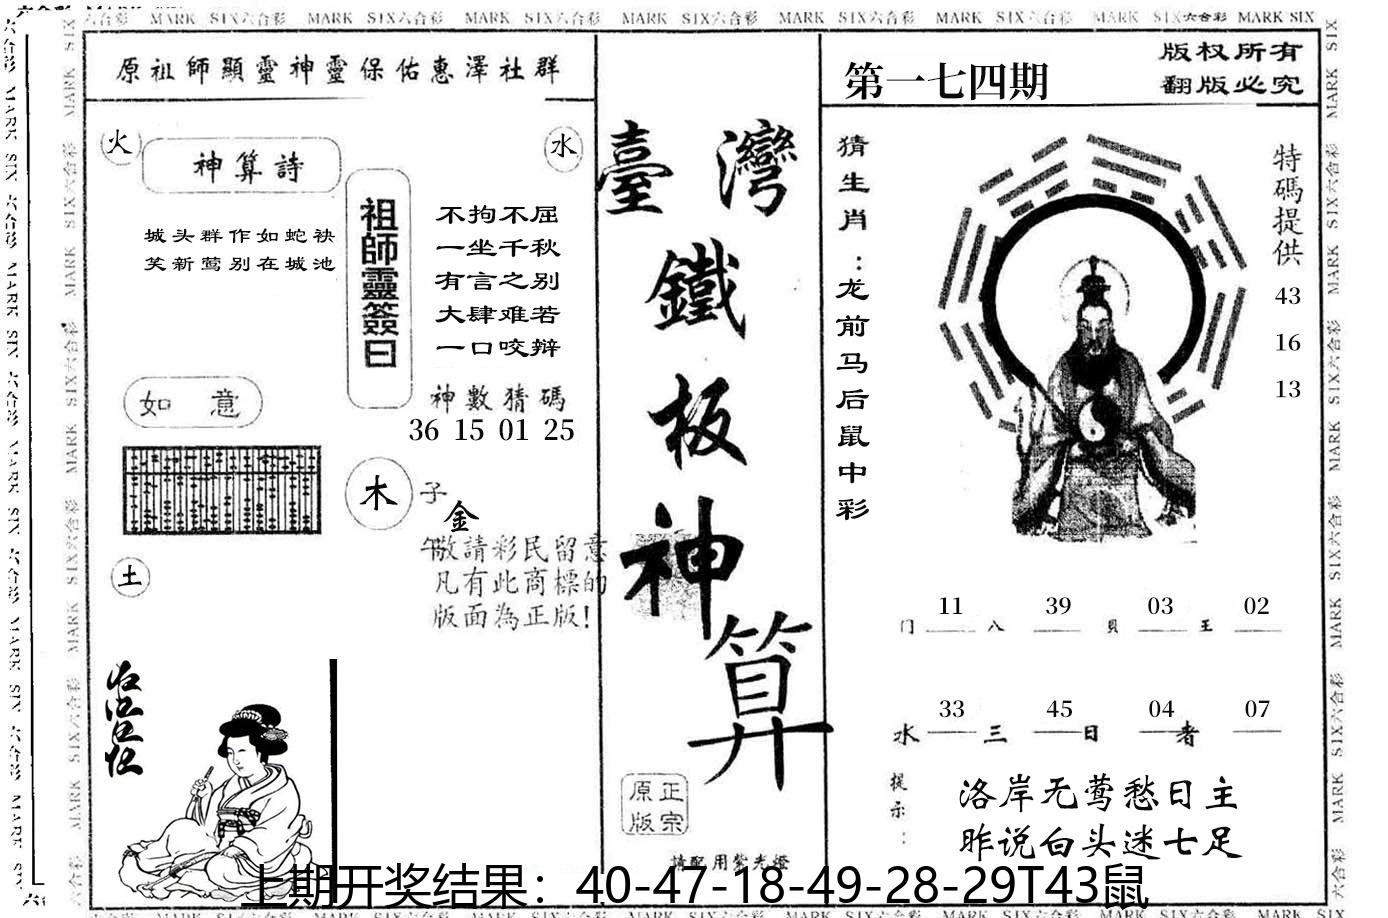 MARK SIX六合彩 MARK SIX六合彩 MARK SIX六合彩 MARK SIX六合彩 MARK SIX六合彩 MARK SIX六合彩 MARK SIX六合彩 MARK SIX
原祖師顯靈神靈保佑惠澤社群
火
神算詩
水
城头群作如蛇袂
笑新莺别在城池
祖師靈簽曰
不拘不屈
一坐千秋
有言之别
大肆难若
一口咬辩
如意
神數猜碼
36 15 01 25
木
子
金
午
敬請彩民留意
凡有此商標的
版面為正版!
土
臺灣
鐵
板
神
算
正宗
原版
請配用紫光燈
第一七四期
版权所有
翻版必究
猜生肖：龙前马后鼠中彩
特碼提供
43
16
13
11 39 03 02
门 八 貝 王
33 45 04 07
水 三 日 者
提示：
洛岸无莺愁日主
昨说白头迷七足
上期开奖结果：40-47-18-49-28-29T43鼠